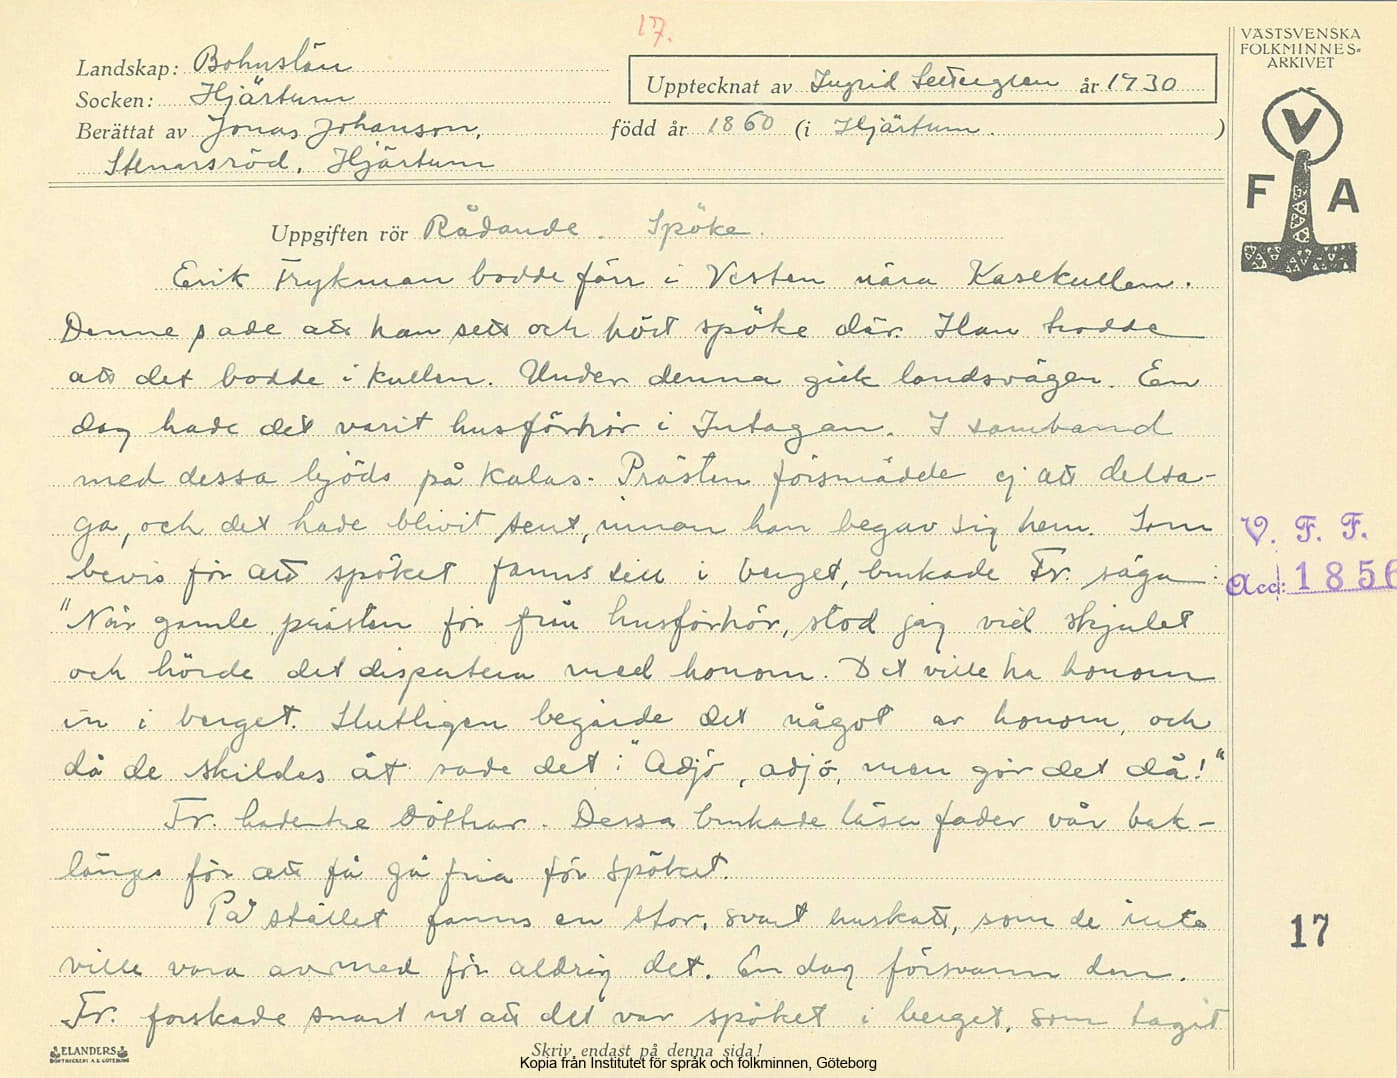 17.
VÄSTSVENSKA
FOLKMINNES-
ARKIVET
Landskap: Bohuslän
Socken: Hjärtum
Upptecknat av Ingrid år 1930
Berättat av Jonas Johanson, född år 1860 (i Hjärtum. )
Stenarsröd, Hjärtum
V
F A
Uppgiften rör Rådande. Spöke.
Erik Frykman bodde förr i Vesten nära Kasekullen.
Denne sade att han sett och hört spöke där. Han trodde
att det bodde i kullen. Under denna gick landsvägen. En
dag hade det varit husförhör i Intagan. I samband
med dessa bjöds på kalas. Prästen försmådde ej att delta-
ga, och det hade blivit sent, innan han begav sig hem. Som
bevis för att spöket fanns till i berget, brukade Fr. säga:
"När gamle prästen för från husförhör, stod jag vid skjulet
och hörde det disputera med honom. Det ville ha honom
in i berget. Slutligen begärde det något av honom, och
då de skildes åt sade det: "Adjö, adjö, men gör det då!"
Fr. hade tre döttrar. Dessa brukade läsa fader vår bak-
länges för att få gå fria för spöket.
På stället fanns en stor, svart huskatt, som de inte
ville vara av med för aldrig det. En dag försvann den.
Fr. forskade snart ut att det var spöket i berget, som tagit
V. F. F.
Acc: 1856
17
ELANDERS
BOKTRYCKERI A.B. GÖTEBORG
Skriv endast på denna sida!
Kopia från Institutet för språk och folkminnen, Göteborg